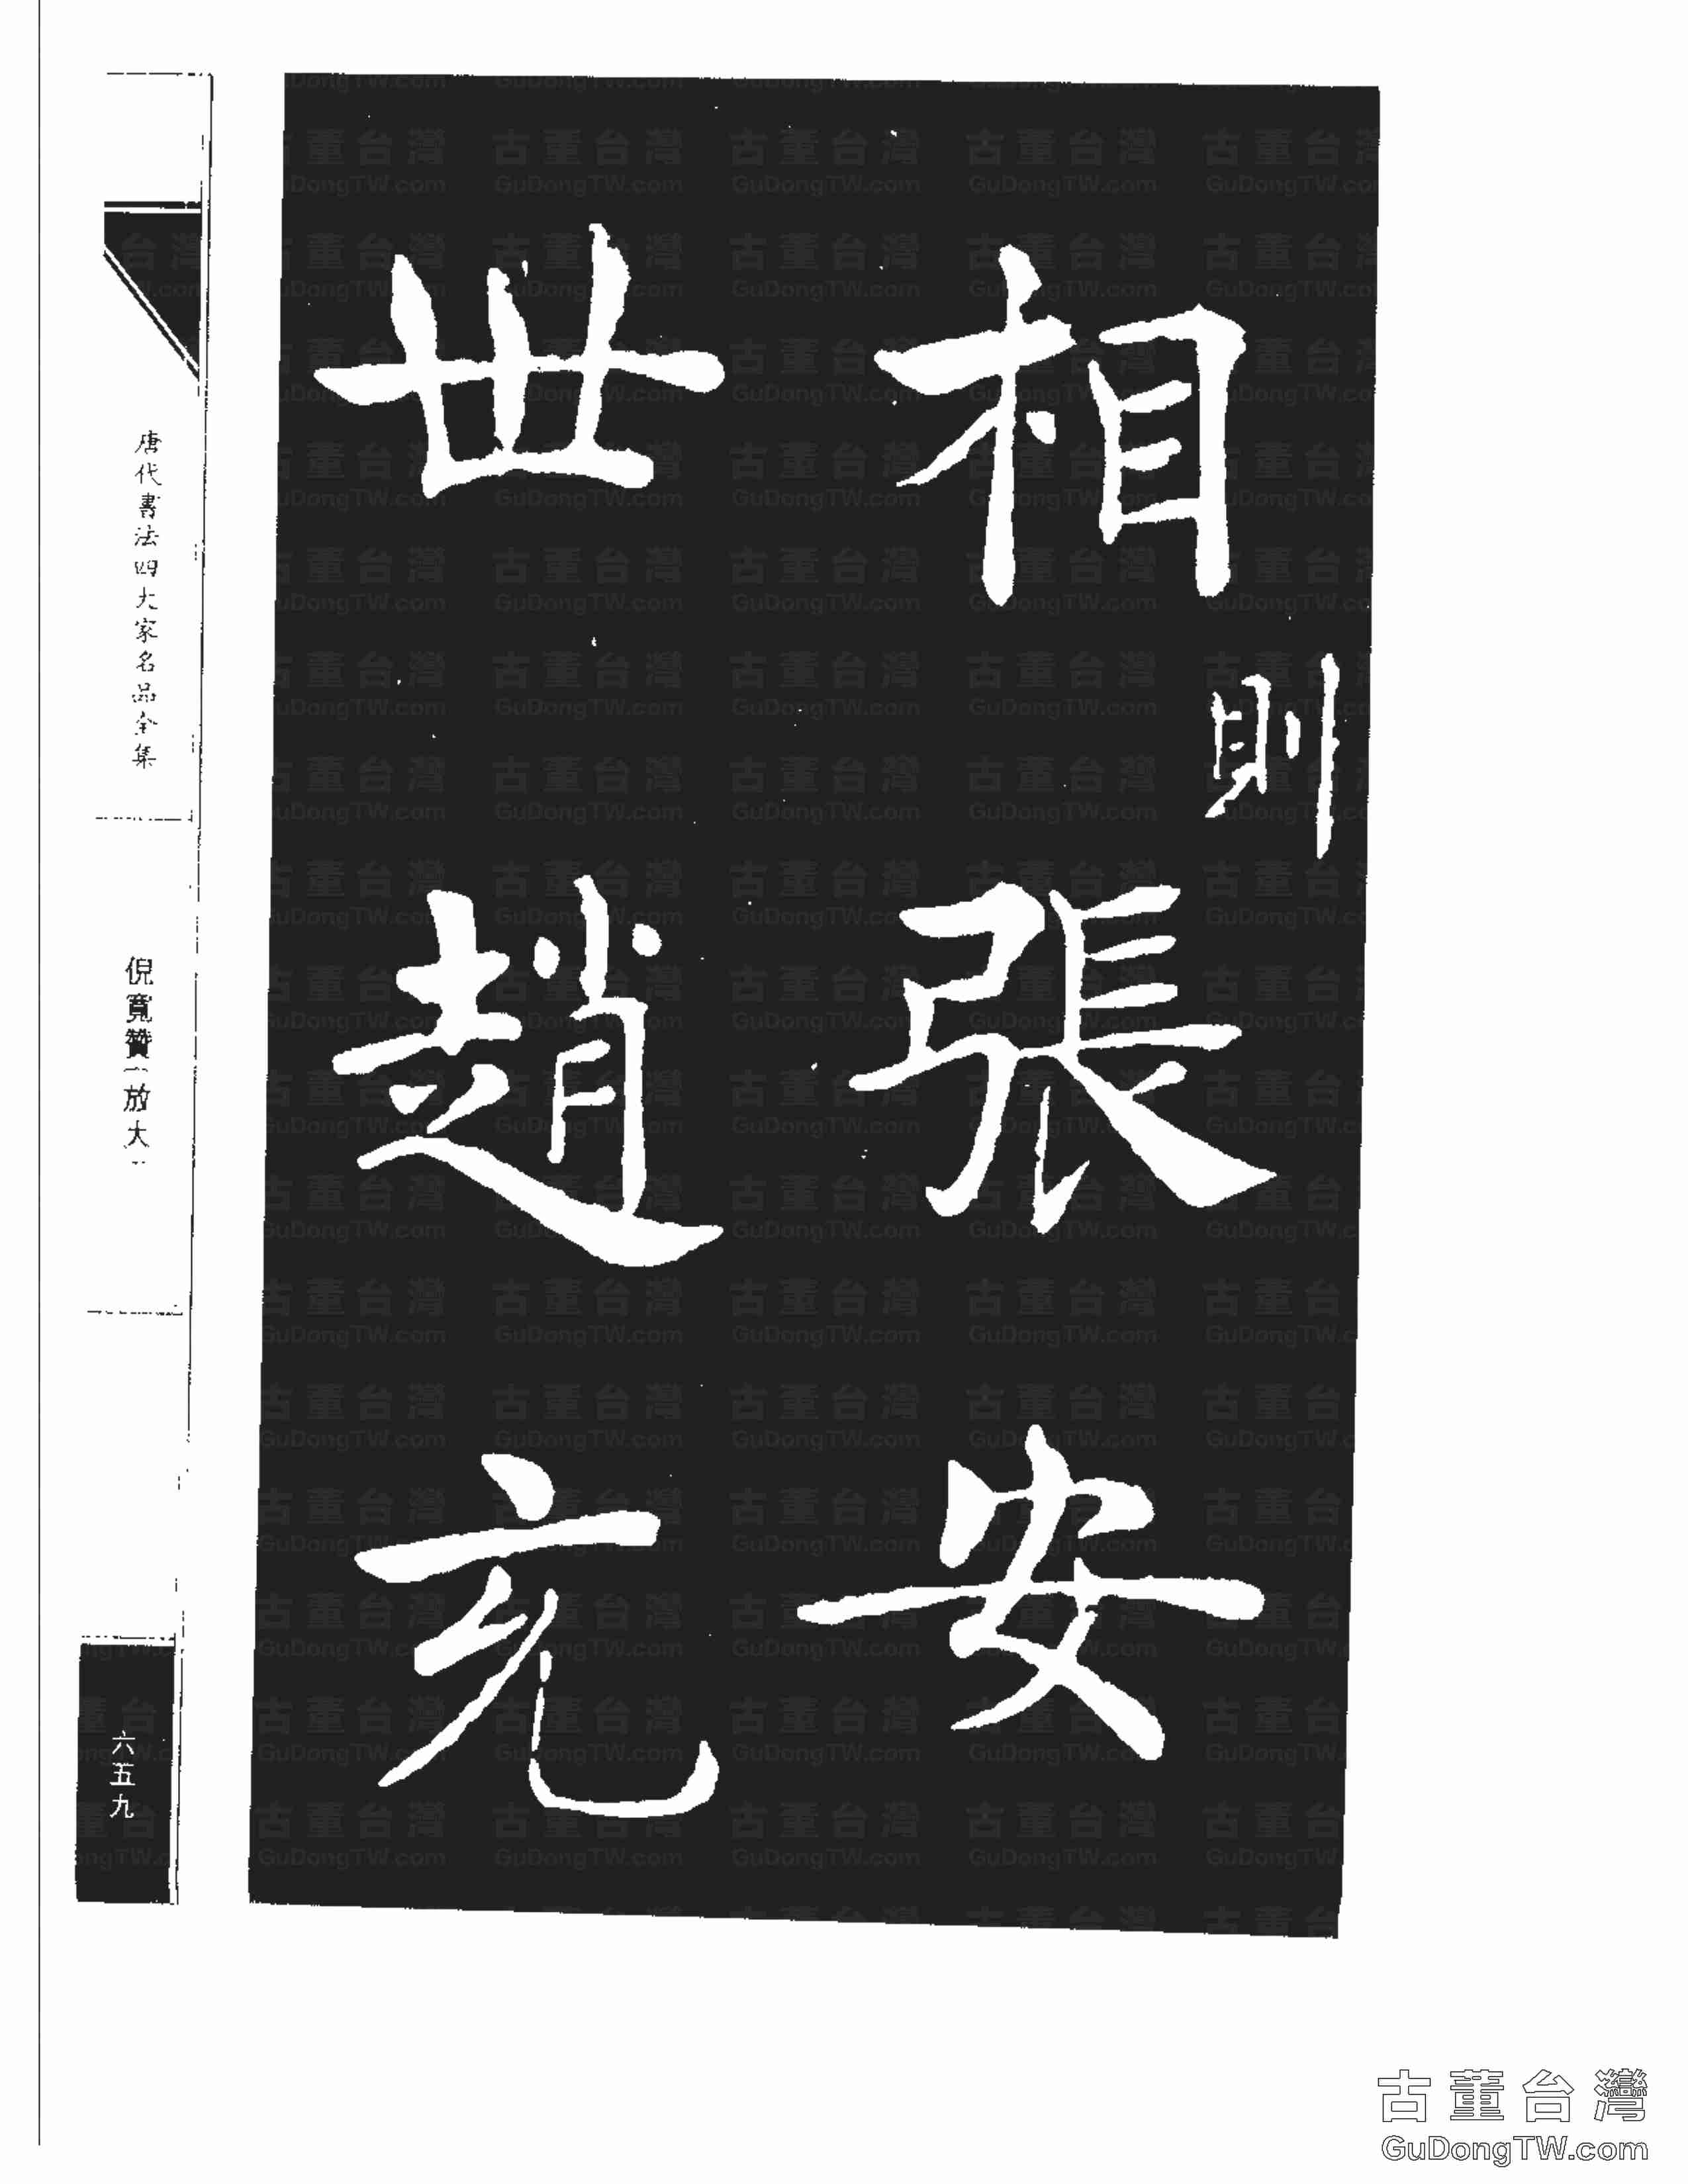 相則張安
世趙充
唐代書法四大家名品全集
倪寬贊(放大)
六五九
古董台灣
GuDongTW.com